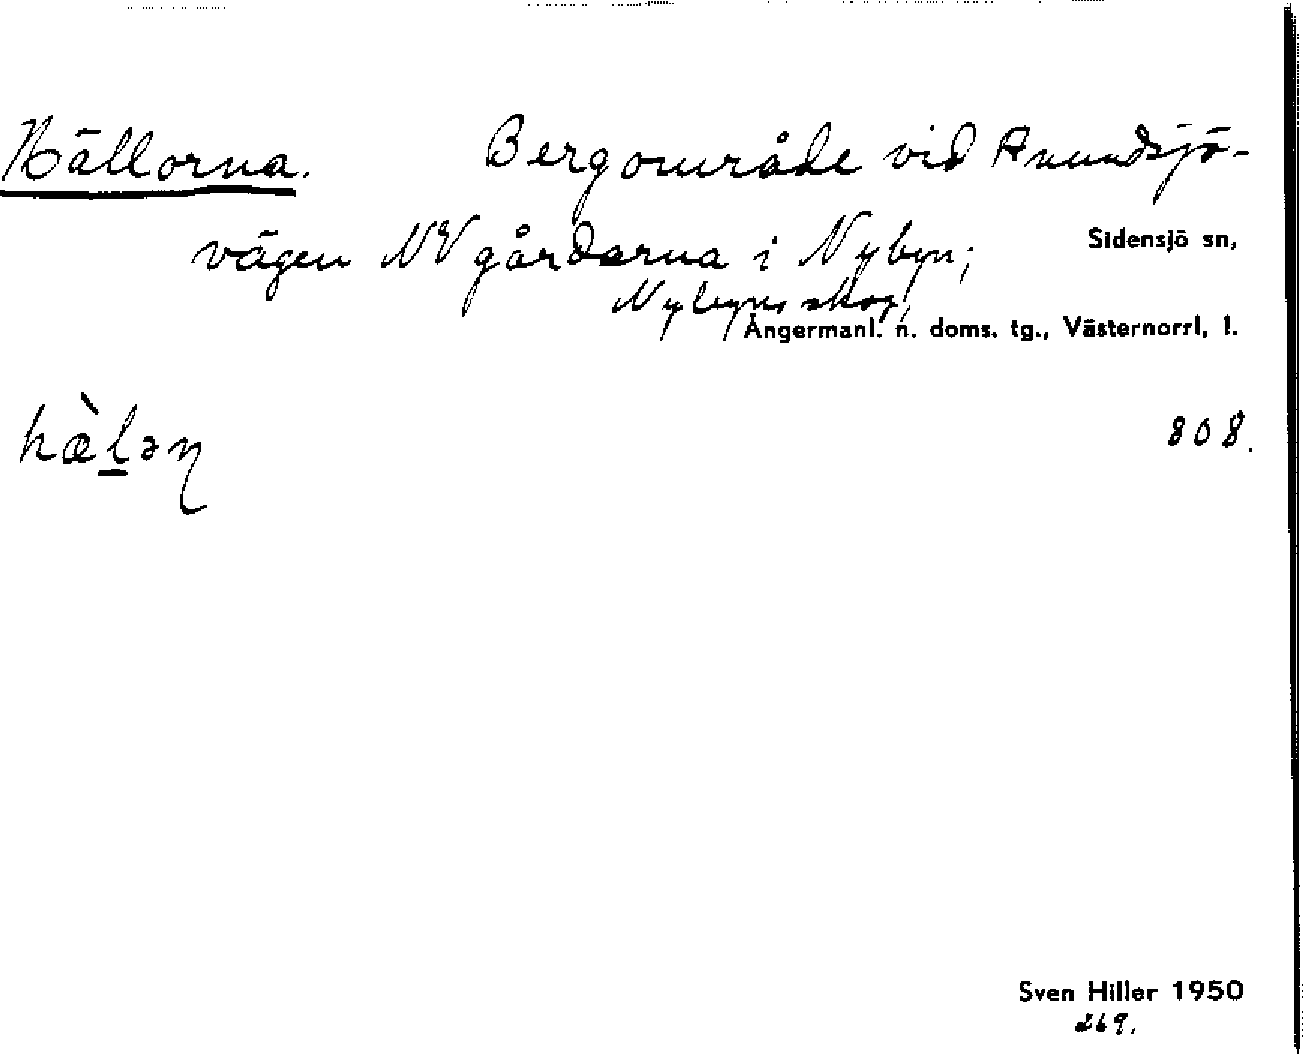 Hällorna. Bergområde vid Anundsjö-
vägen NV gårdarna i Nybyn;
Sidensjö sn,
Nybyns skog,
Ångermanl. n. doms. tg., Västernorrl. l.
hæ̀l̲ən̡
808.
Sven Hiller 1950
269.